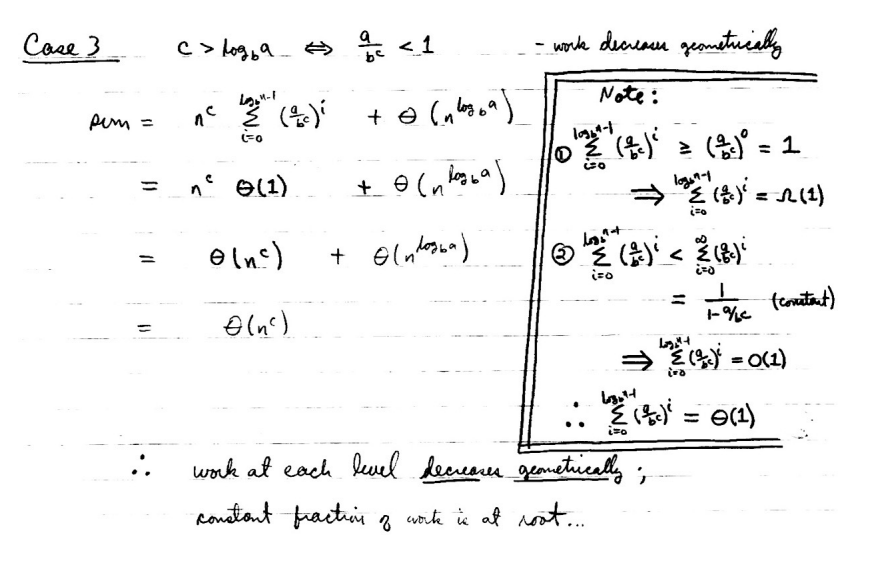 Case 3 c > log_b a ⇔ a/b^c < 1 - work decreases geometrically
sum = n^c Σ_{i=0}^{log_b n-1} (a/b^c)^i + Θ(n^{log_b a})
= n^c Θ(1) + Θ(n^{log_b a})
= Θ(n^c) + Θ(n^{log_b a})
= Θ(n^c)
Note:
① Σ_{i=0}^{log_b n-1} (a/b^c)^i ≥ (a/b^c)^0 = 1
⇒ Σ_{i=0}^{log_b n-1} (a/b^c)^i = Ω(1)
② Σ_{i=0}^{log_b n-1} (a/b^c)^i < Σ_{i=0}^{∞} (a/b^c)^i
= 1/(1-a/b^c) (constant)
⇒ Σ_{i=0}^{log_b n-1} (a/b^c)^i = O(1)
∴ Σ_{i=0}^{log_b n-1} (a/b^c)^i = Θ(1)
∴ work at each level decreases geometrically;
constant fraction of work is at root...